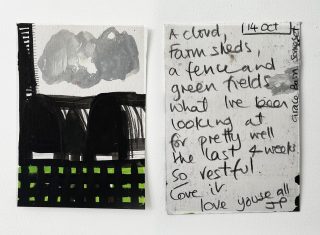 A cloud, 14 OCT
Farm sheds,
a fence and
green fields
what Ive been
looking at
for pretty well
the last 4 weeks
SO restful.
Love it
love youse all
JP
Barn Somerset